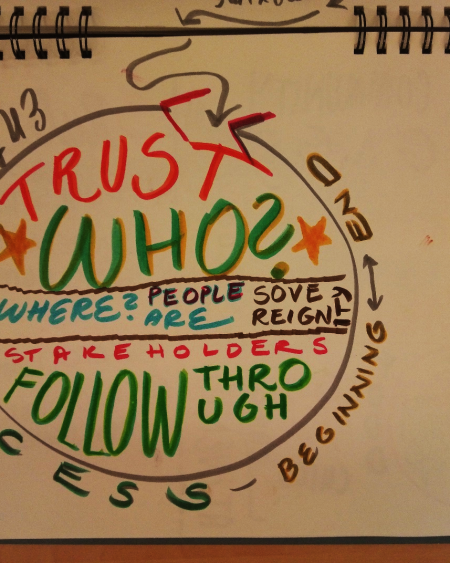 TRUST
WHO?
WHERE? PEOPLE ARE SOVEREIGNTY
STAKEHOLDERS
FOLLOW THROUGH
END
BEGINNING
CESS